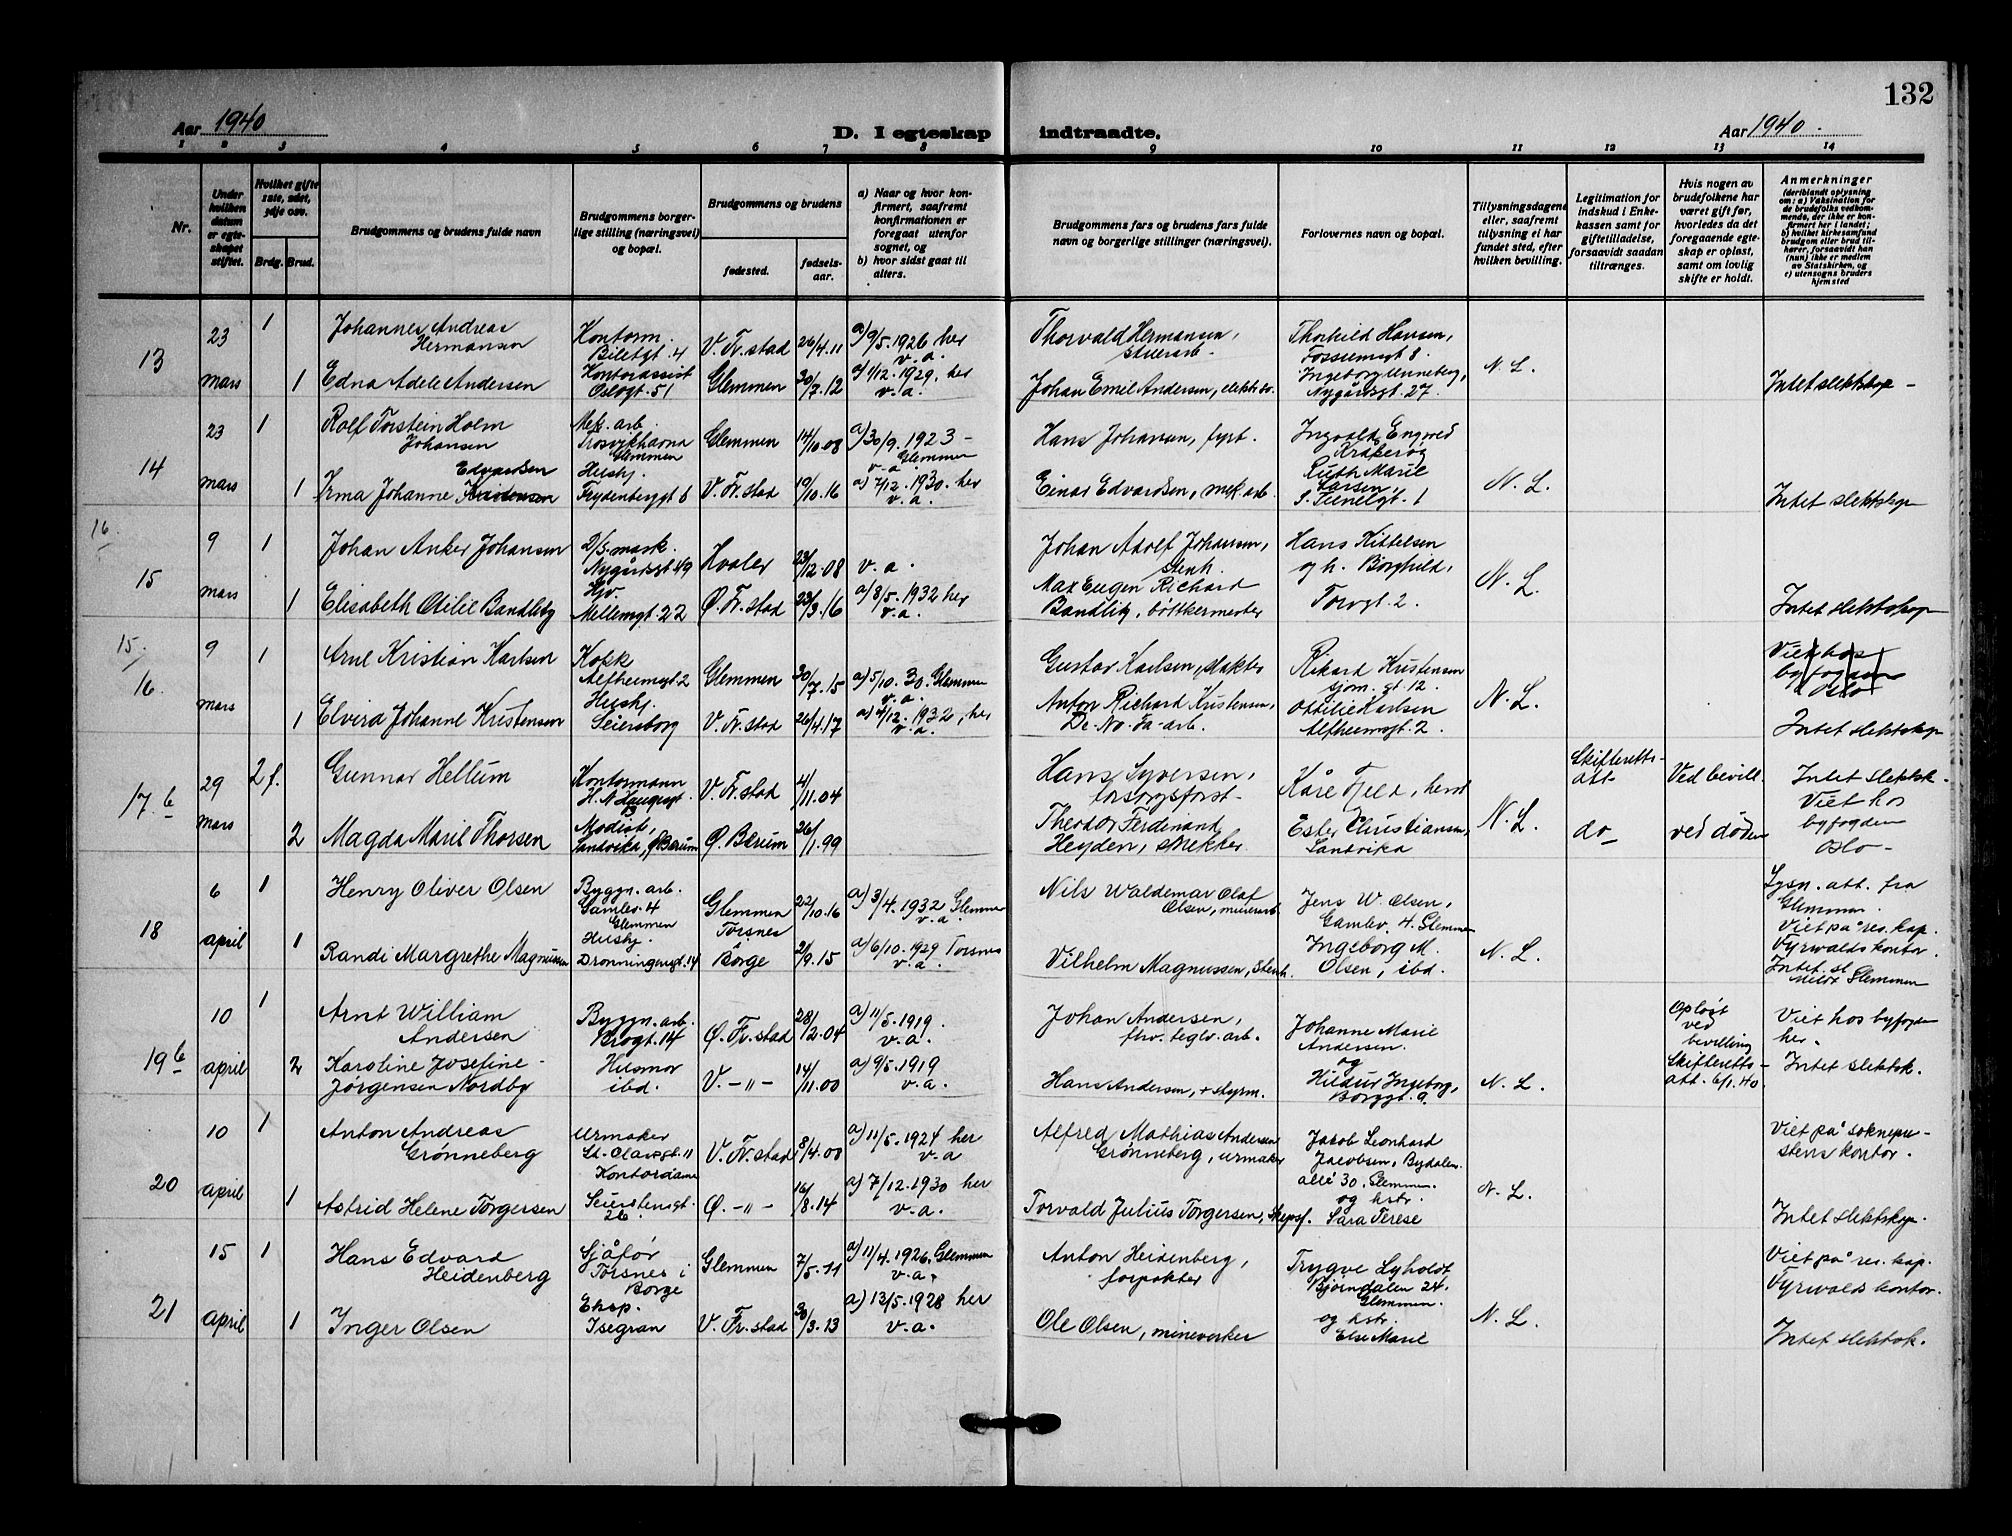 132
Aar 1940
D. I egteskap indtraadte.
Aar 1940.
1 2 3 4 5 6 7 8 9 10 11 12 13 14
Nr.
Under hvilken datum er egteskapet stiftet.
Hvilket gifte 1ste, 2det, 3dje osv.
Brdg. Brud.
Brudgommens og brudens fulde navn
Brudgommens borgerlige stilling (næringsvei) og bopæl.
Brudgommens og brudens
fødested.
fødselsaar.
a) Naar og hvor konfirmert, saafremt konfirmationen er foregaat utenfor sognet, og
b) hvor sidst gaat til alters.
Brudgommens fars og brudens fars fulde navn og borgerlige stillinger (næringsvei).
Forlovernes navn og bopæl.
Tillysningsdagene eller, saafremt tillysning ei har fundet sted, efter hvilken bevilling.
Legitimation for indskud i Enkekassen samt for giftetilladelse, forsaavidt saadan tiltrænges.
Hvis nogen av brudefolkene har været gift før, hvorledes da det foregaaende egteskap er opløst, samt om lovlig skifte er holdt.
Anmerkninger
(deriblandt oplysning om: a) Vaksination for de brudefolks vedkommende, der ikke er konfirmert her i landet; b) hvilket kirkesamfund brudgom eller brud tilhører, forsaavidt han (hun) ikke er medlem av Statskirken, og c) utensogns bruders hjemsted
13
23 mars
1
Johannes Andreas Hermansen
Kontorm. Biletgt. 4
V. Fr.stad
26/4.11
a) 9/5.1926 her v.a.
Thorvald Hermansen,
Thorhild Hansen,
N. L.
1
Edna Adele Andersen
Kontorassist Oslogt. 51
Glemmen
30/7.12
a) 1/12.1929, her v.a.
Johan Emil Andersen,
Nygårdsgt. 27.
Intet slektskap -
14
23 mars
1
Rolf Torstein Holm Johansen
Mek. arb. Trosvikhavna Glemmen
Glemmen
14/10.08
a) 30/9.1923 - Glemmen v.a.
Hans Johansen, fyrb.
Ingvald Engved Kråkerøy
N. L.
1
Edvardsen
Irma Johanne Kristensen
Hushj. Frydenberggt 6
V. Fr.stad
19/10.16
a) 7/12.1930. her v.a.
Einar Edvardsen, mek. arb.
Ruth Marie Larsen,
Intet slektskap
16.
15
9 mars
1
Johan Anker Johansen
Nygårdsgt 49
Hvaler
23/12.08
v.a.
Johan Adolf Johansen, stenh.
Hans Kittelsen og h. Borghild, Torvgt. 2.
N. L.
1
Elisabeth Otilie Bandlig
Hjv. Mellemgt. 22
Ø. Fr.stad
23/3.16
a) 8/5.1932 her v.a.
Max Eugen Richard Bandlig, bøttkermester
Intet slektskap
15.
16.
9 mars
1
Arne Kristian Karlsen
Kokk Alfheimsgt 2
Glemmen
30/7.15
a) 5/10.30. Glemmen v.a.
Gustav Karlsen, slakter
Rikard Kristensen
N. L.
Viet hos byfogden Oslo
1
Elvira Johanne Kristensen
Hushj. Seiersborg
V. Fr.stad
26/4.17
a) 4/12.1932, her v.a.
Anton Richard Kristensen, De-No-Fa-arb.
Ottilie Karlsen Alfheimsgt. 2.
Intet slektskap
17.b
29 mars
2 f.
Gunnar Hellum
Kontormann H. N. Haugesgt.
V. Fr.stad
4/11.04
Hans Syversen, forsorgsforst.
Kåre Fjeld, herst
N. L.
Skifteretts-att.
Ved bevill.
Intet slektsk. Viet hos byfogden Oslo -
2
Magda Marie Thorsen
Modist, Sandvika, Ø Bærum
Ø. Bærum
26/1.99
Theodor Ferdinand Heyden, snekker
Ester Christiansen, Sandvika
do
ved døden
18
6 april
1
Henry Oliver Olsen
Byggn. arb. Gamlev. 4 Glemmen
Glemmen
22/10.16
a) 3/4.1932 Glemmen v.a.
Nils Waldemar Olaf Olsen, murerarb.
Jens W. Olsen, Gamlev. 4. Glemmen
N. L.
Lysn. att. fra Glemmen. Viet på res. kap. Fyrwalds kontor.
1
Randi Margrethe Magnussen
Hushj. Dronningensgt. 14
Torsnes Borge
21/9.15
a) 6/10.1929 Torsnes v.a.
Vilhelm Magnussen, stenh.
Ingeborg M. Olsen, ibd.
Intet sl. Meldt Glemmen
19 b
10 april
1
Arnt William Andersen
Byggn. arb. Brogt. 14
Ø. Fr. stad
28/12.04
a) 11/5.1919. v.a.
Johan Andersen, fhv. teglv. arb.
Johanne Marie Andersen. og
N. L.
Opløst ved bevilling
Viet hos byfogden her.
2
Karoline Josefine - Jørgensen Nordby
Husmor ibd.
V. -"-
14/11.00
a) 9/5.1919 v.a.
Hans Andersen, + styrm.
Hildur Ingeborg, Borggt. 9.
Skifteretts- att. 6/1.40
Intet slektsk.
20
10 april
1
Anton Andreas Grønneberg
Urmaker St. Olavsgt. 11
V. Fr. stad
8/4.00
a) 11/5.1924 her v.a
Alfred Mathias Andersen Grønneberg, urmaker
Jakob Leonhard Jacobsen, Bydalen allé 30. Glemmen. og hstr. Sara Terese
N. L.
Viet på sogneprestens kontor.
1
Astrid Helene Torgersen
Kontordame Seierstensgt. 26.
Ø. -"-
16/8.14
a) 7/12.1930 her v.a.
Torvald Julius Torgersen, skipsf.
Intet slektskap.
21
15 april
1
Hans Edvard Heidenberg
Sjåfør Torsnes i Borge
Glemmen
7/5.11
a) 11/4.1926. Glemmen v.a.
Anton Heidenberg, forpakter
Trygve Lyholdt Bjørndalen 24. Glemmen. og hstr. Else Marie
N. L.
Viet på res. kap. Fyrwalds kontor.
1
Inger Olsen
Eksp. Isegran
V. Fr. stad
30/3.13
a) 13/5.1928 her v.a.
Ole Olsen, minevæker
Intet slektsk.